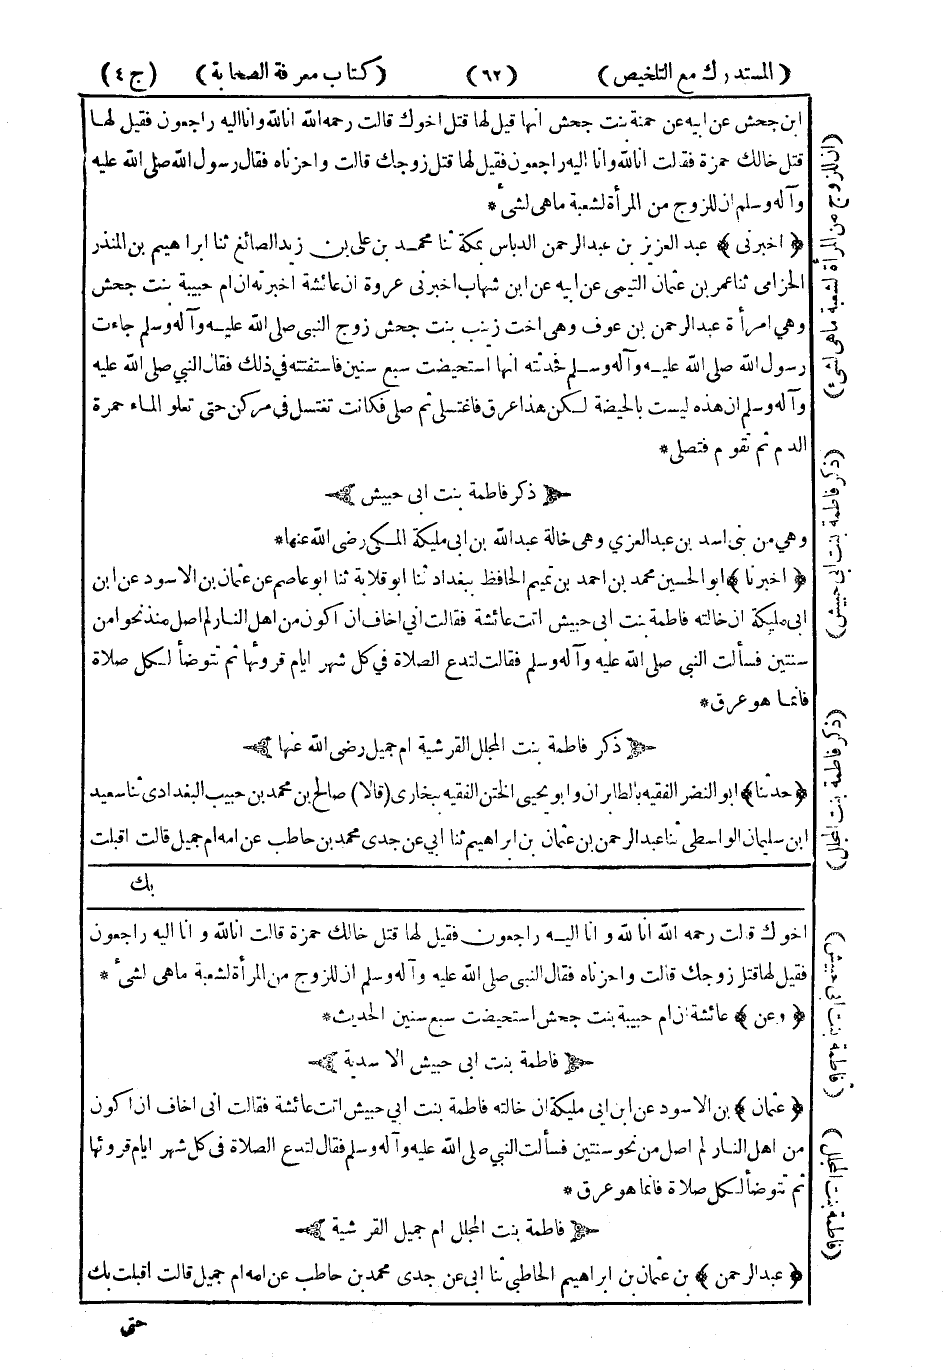 (المستدرك مع التلخيص) (٦٢) (كتاب معرفة الصحابة) (ج ٤)
ابن جحش عن ابيه عن حمنة بنت جحش انها قيل لها قتل اخوك قالت رحمه الله انالله وانااليه راجعون فقيل لها
قتل خالك حمزة فقالت انالله وانا اليه راجعون فقيل لها قتل زوجك قالت واحزناه فقال رسول الله صلى الله عليه
وآله وسلم ان للزوج من المرأة لشعبة ماهى لشئ *
﴿ اخبرنى ﴾ عبد العزيز بن عبدالرحمن الدباس بمكة ثنا محمد بن على بن زيد الصائغ ثنا ابراهيم بن المنذر
الحزامى ثنا عمر بن عثمان التيمى عن ابيه عن ابن شهاب اخبرنى عروة ان عائشة اخبرته ان ام حبيبة بنت جحش
وهي امرأة عبدالرحمن بن عوف وهى اخت زينب بنت جحش زوج النبى صلى الله عليه وآله وسلم جاءت
رسول الله صلى الله عليه وآله وسلم فحدثته انها استحيضت سبع سنين فاستفتته في ذلك فقال النبي صلى الله عليه
وآله وسلم ان هذه ليست بالحيضة لكن هذا عرق فاغتسلى ثم صلى فكانت تغتسل في مركن حتى تعلو الماء حمرة
الدم ثم تقوم فتصلى *
ذكر فاطمة بنت ابى حبيش
وهي من بنى اسد بن عبدالعزي وهى خالة عبدالله بن ابى مليكة المكى رضى الله عنها *
﴿ اخبرنا ﴾ ابو الحسين محمد بن احمد بن تميم الحافظ ببغداد ثنا ابو قلابة ثنا ابو عاصم عن عثمان بن الاسود عن ابن
ابى مليكة ان خالته فاطمة بنت ابى حبيش اتت عائشة فقالت اني اخاف ان اكون من اهل النار لم اصل منذ نحو امن
سنتين فسألت النبى صلى الله عليه وآله وسلم فقالت لتدع الصلاة في كل شهر ايام قروئها ثم تتوضأ لكل صلاة
فانما هو عرق *
ذكر فاطمة بنت المجلل القرشية ام جميل رضى الله عنها
﴿ حدثنا ﴾ ابو النضر الفقيه بالطابران وابو يحيى الختن الفقيه ببخارى (قالا) صالح بن محمد بن حبيب البغدادى ثنا سعيد
ابن سليمان الواسطى ثنا عبدالرحمن بن عثمان بن ابراهيم ثنا ابي عن جدى محمد بن حاطب عن امه ام جميل قالت اقبلت
بك
اخوك قالت رحمه الله انا لله و انا اليه راجعون فقيل لها قتل خالك حمزة قالت انالله و انا اليه راجعون
فقيل لها قتل زوجك قالت واحزناه فقال النبى صلى الله عليه وآله وسلم ان للزوج من المرأة لشعبة ماهى لشئ *
﴿ وعن ﴾ عائشة ان ام حبيبة بنت جحش استحيضت سبع سنين الحديث *
فاطمة بنت ابى حبيش الاسدية
﴿ عثمان ﴾ بن الاسود عن ابن ابى مليكة ان خالته فاطمة بنت ابي حبيش اتت عائشة فقالت انى اخاف ان اكون
من اهل النار لم اصل من نحو سنتين فسألت النبي صلى الله عليه وآله وسلم فقال لتدع الصلاة في كل شهر ايام قروئها
ثم تتوضأ لكل صلاة فانما هو عرق *
فاطمة بنت المجلل ام جميل القرشية
﴿ عبدالرحمن ﴾ بن عثمان بن ابراهيم الحاطبي ثنا ابى عن جدى محمد بن حاطب عن امه ام جميل قالت اقبلت بك
حتى
(ان للزوج من المرأة لشعبة ماهى لشئ)
(ذكر فاطمة بنت ابى حبيش)
(ذكر فاطمة بنت المجلل)
(فاطمة بنت ابى حبيش)
(فاطمة بنت المجلل)